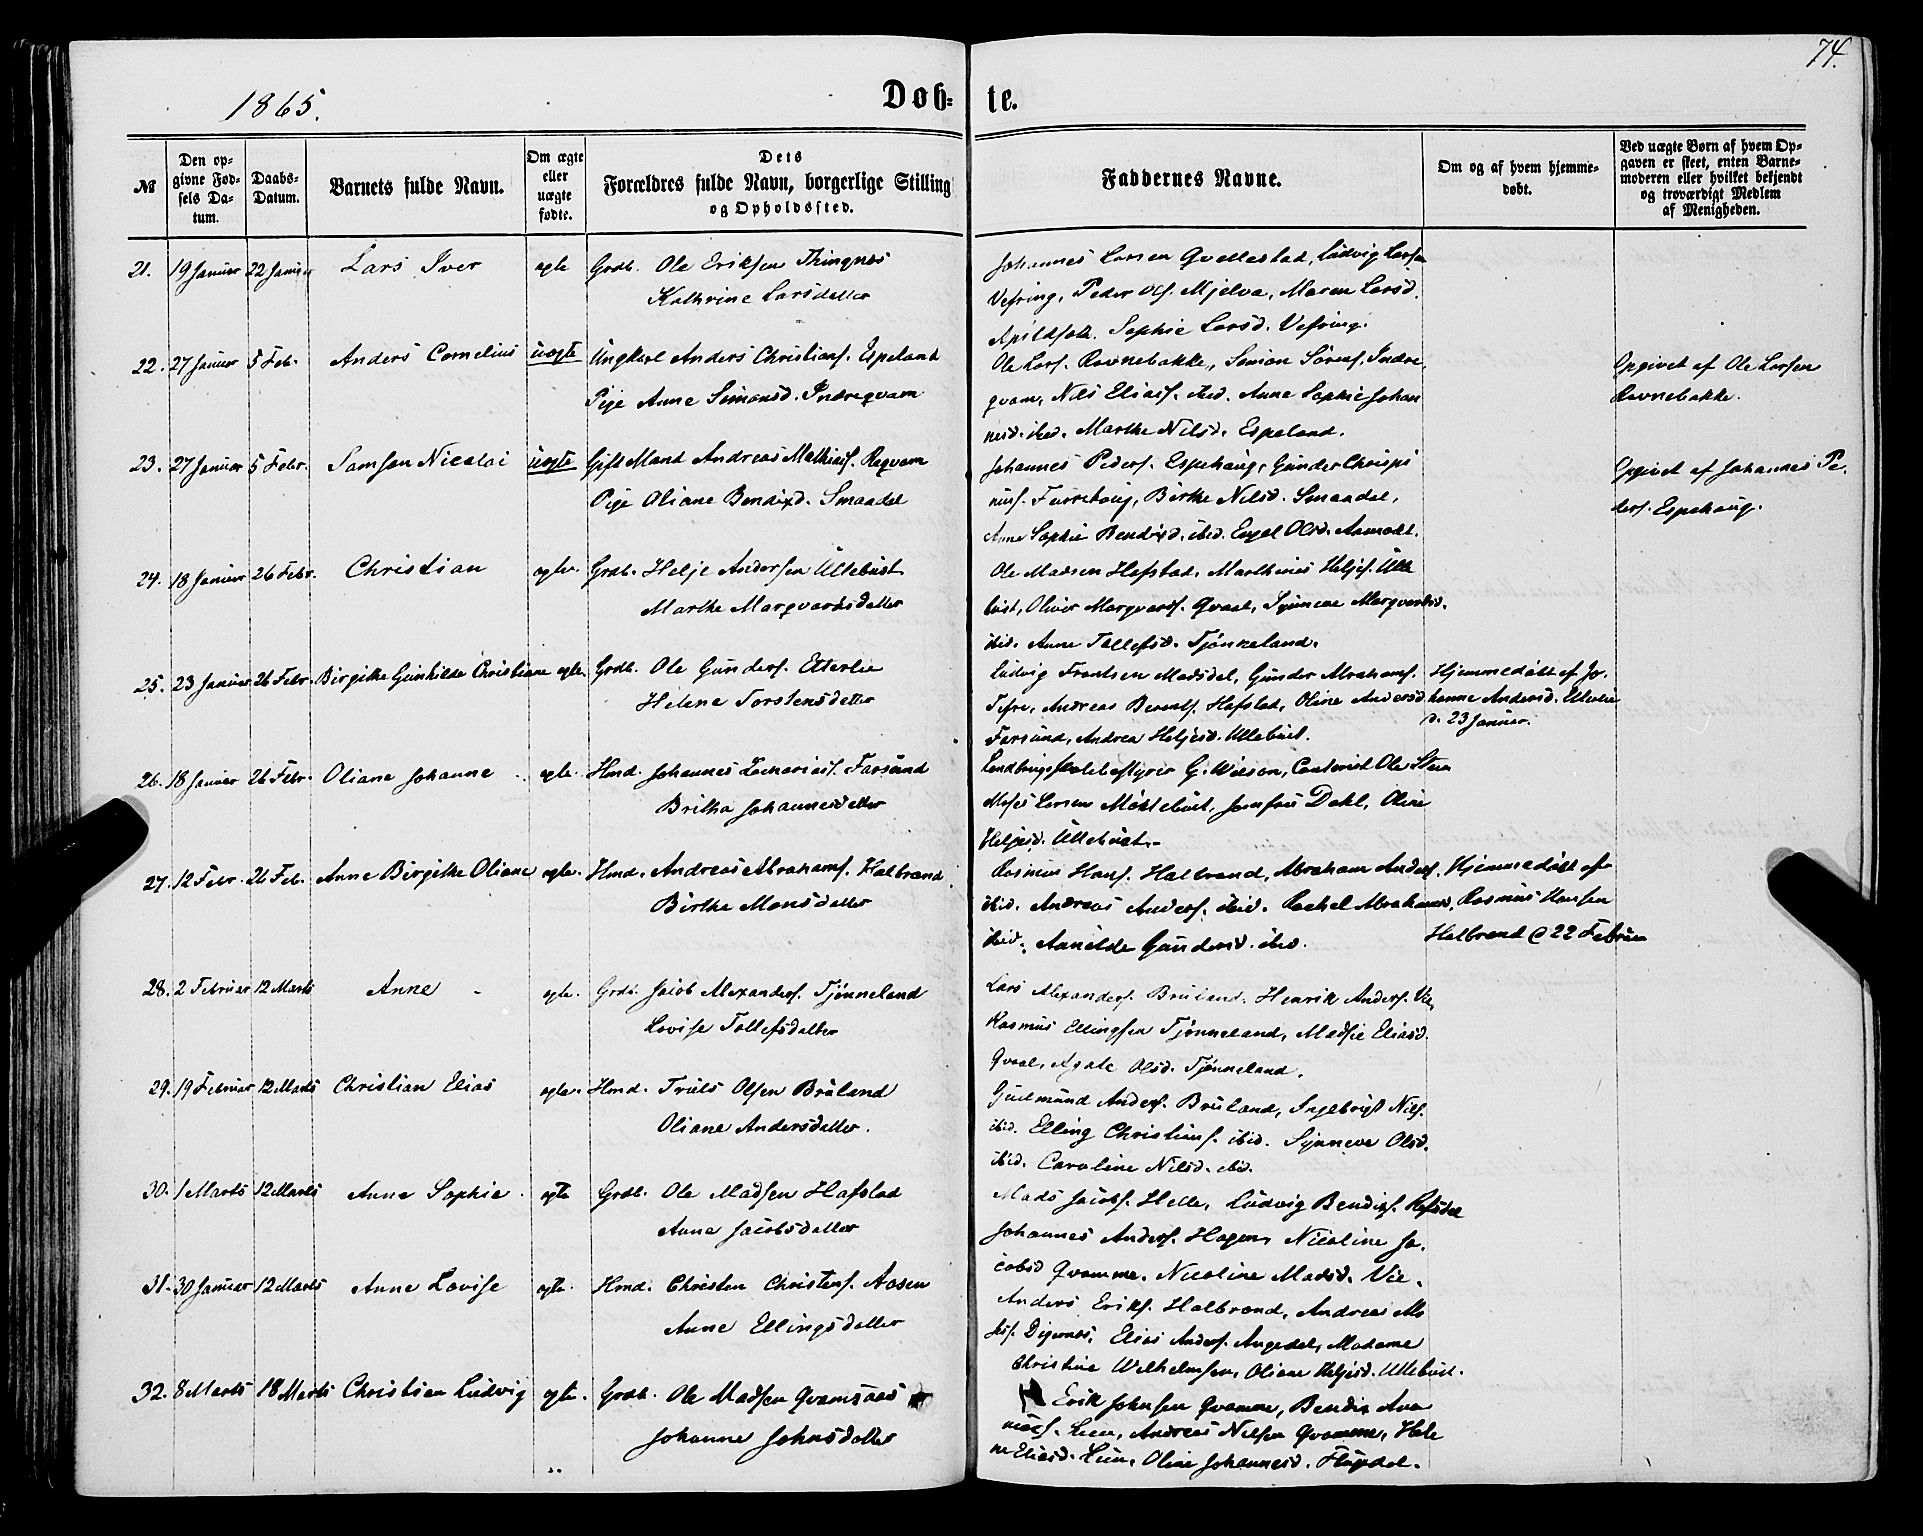 74.
1865.
Døb- te.
№
Den opgivne Fødsels Datum.
Daabs-Datum.
Barnets fulde Navn.
Om ægte eller uægte fødte.
Dets Forældres fulde Navn, borgerlige Stilling og Opholdssted.
Faddernes Navne.
Om og af hvem hjemmedøbt.
Ved uægte Børn af hvem Opgaven er skeet, enten Barnemoderen eller hvilket bekjendt og troværdigt Medlem af Menigheden.
21. 19 Januar 22 Januar Lars Iver ægte Grdb. Ole Eriksen Thingnes
Kathrine Larsdatter
Johannes Larsen Qvellestad, Ludvig Larsen
Vefring, Peder Ols. Mjelva, Maren Larsd.
Sophie Larsd. Vefring.
22. 27 Januar 5 Feb. Anders Cornelius uægte Ungkarl Anders Christians. Espeland
Pige Anne Simonsd. Indreqvam
Ole Lars. Ravnebakke, Simon Sørens. Indre
qvam, Nils Elias. ibid. Anne Sophie Johan
nesd. ibid. Marthe Nilsd. Espeland.
Opgivet af Ole Larsen
Ravnebakke.
23. 27 Januar 5 Febr. Samson Nicolai uægte Gift Mand Andreas Mathias. Reqvam
Pige Oliane Bendixd. Smaadal
Johannes Peders. Espehaug, Gunder Chrispi
nus. Furrehaug, Birthe Nilsd. Smaadal,
Anne Sophie Bendixd. ibid. Engel Olsd.
Opgivet af Johannes Pe-
ders. Espehaug.
24. 18 Januar 26 Febr. Christian ægte. Grdb. Helje Andersen Ullebust
Marthe Marqvardsdatter
Ole Madsen Hafstad, Marthinus Heljes. Ulle
bust, Oliver Marqvards. Qvaal, Synneve Marqvardsd.
ibid. Anne Tollefsd. Tjønneland.
25. 23 Januar 26 Febr. Birgithe Gunhilde Christiane ægte. Grdb. Ole Gunders. Etterlie
Helene Torstensdatter
Ludvig Frantsen Madsdal, Gunder Abrahams.
Tefre, Andreas Berents. Hafstad, Oline Andersd.
Farsund, Andrea Heljesd. Ullebust.
Hjemmedøbt af Jo-
hanne Andersd. Etterlie
d. 23 Januar.
26. 18 Januar 26 Febr. Oliane Johanne ægte. Hmd. Johannes Zacharias. Farsund
Britha Johannesdatter
Landbrugsskolebestyrer G. Wilson, Contorist Ole Steen
Moses Larsen Møklebust, Jomfru Dahl, Oline
Heljesd. Ullebust.
27. 12 Febr. 26 Feb. Anne Birgithe Oliane ægte. Hmd. Andreas Abrahams. Halbrand
Birthe Monsdatter
Rasmus Hans. Halbrand, Abraham Anders.
ibid. Andreas Anders. ibid. Rachel Abrahamsd.
ibid. Aanilde Gundersd. ibid.
Hjemmedøbt af
Rasmus Hansen
Halbrand d 22 Februar
28. 2 Februar 12 Marts Anne ægte. Grdb. Jacob Alexanders. Tjønneland
Lovise Tollefsdatter
Lars Alexanders. Bruland, Henrik Anders. Vie,
Rasmus Ellingsen Tjønneland, Madsie Eliasd.
Qvaal, Agate Olsd. Tjønneland.
29. 19 Februar 12 Marts Christian Elias ægte. Hmd. Truls Olsen Bruland
Oliane Andersdatter.
Gudmund Anders. Bruland, Ingebrigt Nils.
ibid. Elling Christians. ibid. Synneve Olsd.
ibid. Caroline Nilsd. ibid.
30. 1 Marts 12 Marts Anne Sophie ægte Grdb. Ole Madsen Hafstad
Anne Jacobsdatter
Mads Jacobs. Helle, Ludvig Bendixs. Refsdal
Johannes Anders. Hagen, Nicoline Ja-
cobsd Qvamme, Nicoline Madsd. Vie.
31. 30 Januar 12 Marts Anne Lovise ægte. Hmd. Christen Christens. Aasen
Anne Ellingsdatter
Anders Eriks. Halbrand, Andreas Mo
ses. Digernes, Elias Anders. Angedal, Madame
Christine Wilhelmsen, Oliane Heljesd. Ullebust.
32. 8 Marts 18 Marts Christian Ludvig ægte. Grdb. Ole Madsen Qvamsaas
Johanne Johnsdatter
Erik Johnsen Qvamme, Bendix
Andreas Nilsen Qvamme, Hele
ne Eliasd. Oline Johannesd.